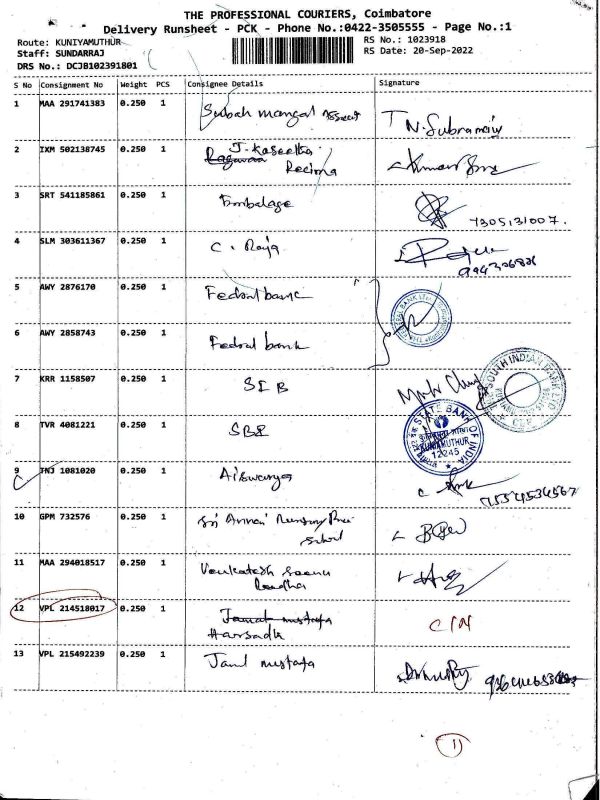 THE PROFESSIONAL COURIERS, Coimbatore
Delivery Runsheet - PCK - Phone No.:0422-3505555 - Page No.:1
Route: KUNIYAMUTHUR
Staff: SUNDARRAJ
DRS No.: DCJB102391801
RS No.: 1023918
RS Date: 20-Sep-2022
S No Consignment No Weight PCS Consignee Details Signature
1 MAA 291741383 0.250 1 Subah mangal T N. Subramaniy
2 IXM 502138745 0.250 1 J. Kaseetha
Recima
3 SRT 541185861 0.250 1 Embalage 7305131007.
4 SLM 303611367 0.250 1 C. Raja
5 AWY 2876170 0.250 1 Fedral bank
6 AWY 2858743 0.250 1 Fedral bank
7 KRR 1158507 0.250 1 SIB
SOUTH INDIAN BANK LTD
8 TVR 4081221 0.250 1 SBI
STATE BANK OF INDIA
KUNIAMUTHUR
12245
9 TNJ 1081020 0.250 1 Aiswarya
10 GPM 732576 0.250 1 Sri Annai Nursury
School
11 MAA 294018517 0.250 1 Venkatesh
12 VPL 214518017 0.250 1 Jamal mustafa
Harsadh
13 VPL 215492239 0.250 1 Jaml mustafa
11